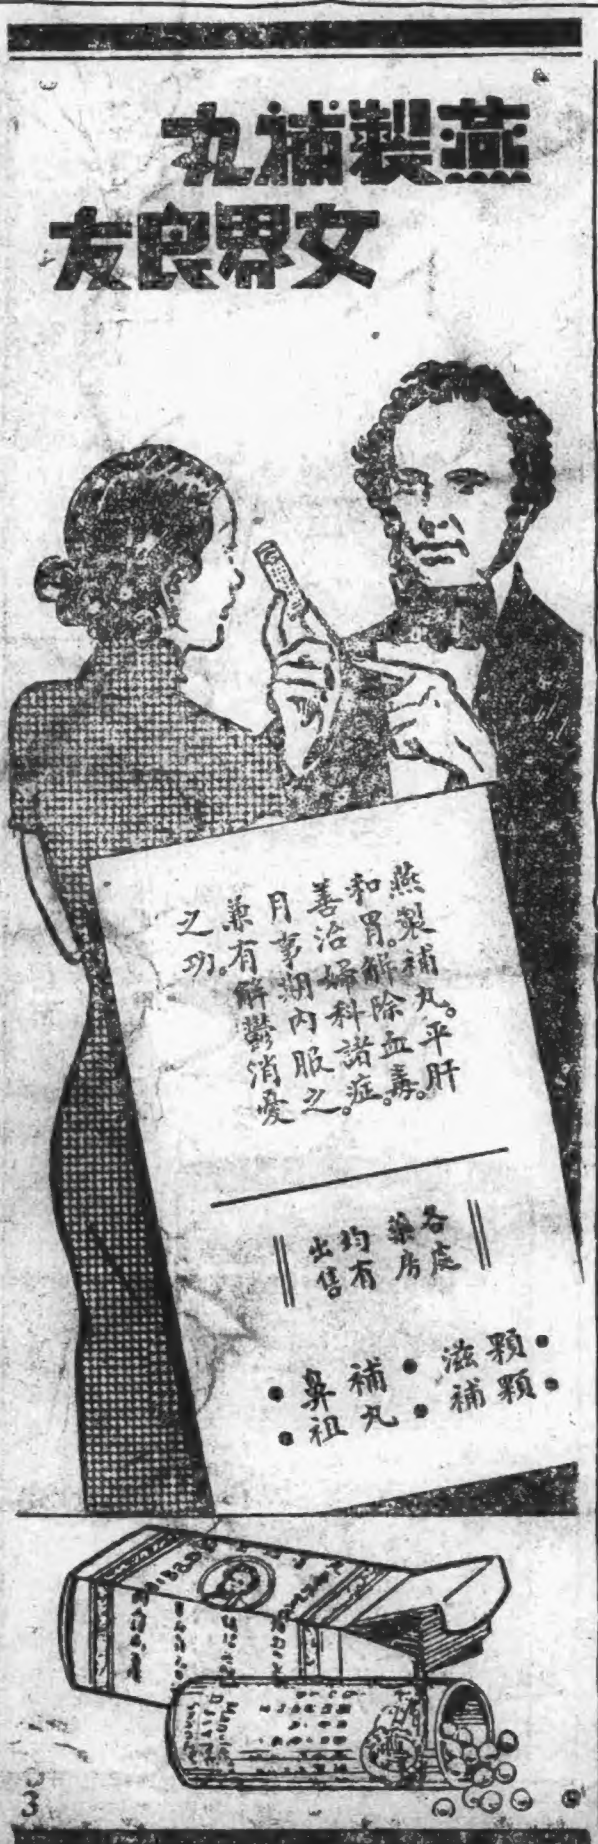 燕製補丸
女界良友
燕製補丸。平肝
和胃。解除血毒。
善治婦科諸症。
月事期內服之。
兼有解鬱消憂
之功。
各處
藥房
均有
出售
顆顆
滋補
補丸
鼻祖